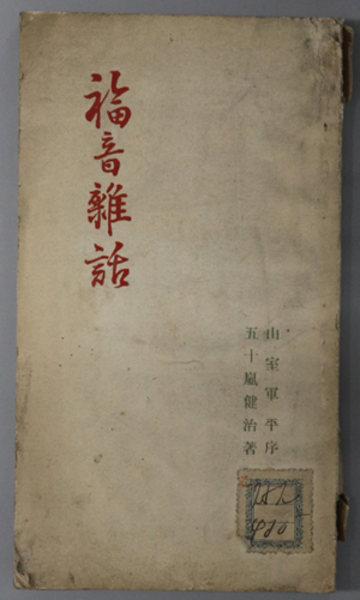 福音雜話
山室軍平序
五十嵐健治著